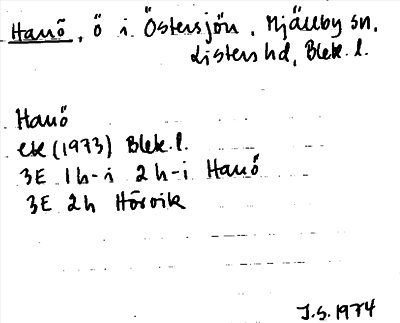 Hanö, ö i Östersjön. Mjällby sn,
Listers hd, Blek. l.
Hanö
ek (1973) Blek. l.
3E 1h-i 2h-i Hanö
3E 2h Hörvik
J.S. 1974